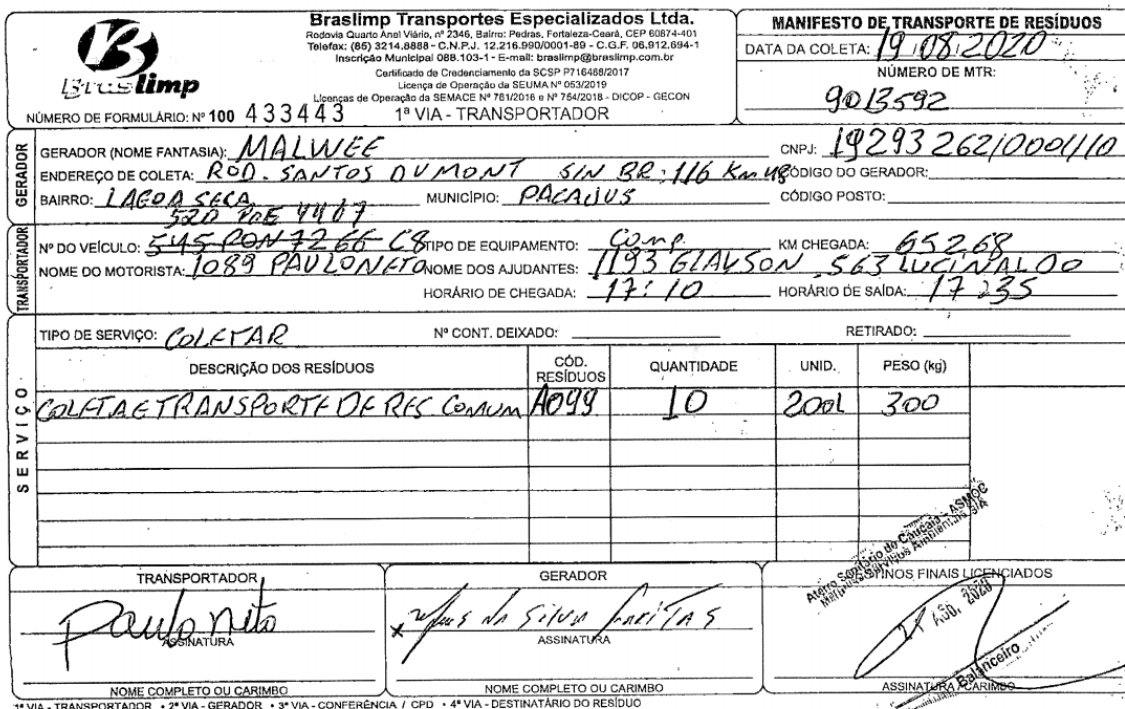 Braslimp
Braslimp Transportes Especializados Ltda.
Rodovia Quarto Anel Viário, nº 2346, Bairro: Pedras, Fortaleza-Ceará, CEP 60874-401
Telefax: (85) 3214.8888 - C.N.P.J. 12.216.990/0001-89 - C.G.F. 06.912.694-1
Inscrição Municipal 088.103-1 - E-mail: braslimp@braslimp.com.br
Certificado de Credenciamento da SCSP P716468/2017
Licença de Operação da SEUMA Nº 053/2019
Licenças de Operação da SEMACE Nº 761/2016 e Nº 754/2018 - DICOP - GECON
NÚMERO DE FORMULÁRIO: Nº 100 433443 1ª VIA - TRANSPORTADOR
MANIFESTO DE TRANSPORTE DE RESÍDUOS
DATA DA COLETA: 19/08/2020
NÚMERO DE MTR:
9013592
GERADOR
GERADOR (NOME FANTASIA): MALWEE CNPJ: 19293262/0001/10
ENDEREÇO DE COLETA: ROD. SANTOS DUMONT S/N BR: 116 Km 48 CÓDIGO DO GERADOR:
BAIRRO: LAGOA SECA MUNICÍPIO: PACAJUS CÓDIGO POSTO:
TRANSPORTADOR
520 4407
Nº DO VEÍCULO: 545 7266 C8 TIPO DE EQUIPAMENTO: Comp. KM CHEGADA: 65268
NOME DO MOTORISTA: 1089 PAULO NETO NOME DOS AJUDANTES: 1193 GLAYSON 563 LUCINALDO
HORÁRIO DE CHEGADA: 17:10 HORÁRIO DE SAÍDA: 17:35
SERVIÇO
TIPO DE SERVIÇO: COLETAR Nº CONT. DEIXADO: RETIRADO:
DESCRIÇÃO DOS RESÍDUOS CÓD. RESÍDUOS QUANTIDADE UNID. PESO (kg)
COLETA E TRANSPORTE DE RES COMUM A099 10 200L 300
Aterro Sanitário de Caucaia - ASMOC
Serviços Ambientais S/A
TRANSPORTADOR GERADOR DESTINOS FINAIS LICENCIADOS
Paulo Neto
x da Silva Freitas
21 AGO. 2020
Balanceiro
ASSINATURA ASSINATURA ASSINATURA/CARIMBO
NOME COMPLETO OU CARIMBO NOME COMPLETO OU CARIMBO
1ª VIA - TRANSPORTADOR • 2ª VIA - GERADOR • 3ª VIA - CONFERÊNCIA / CPD • 4ª VIA - DESTINATÁRIO DO RESÍDUO